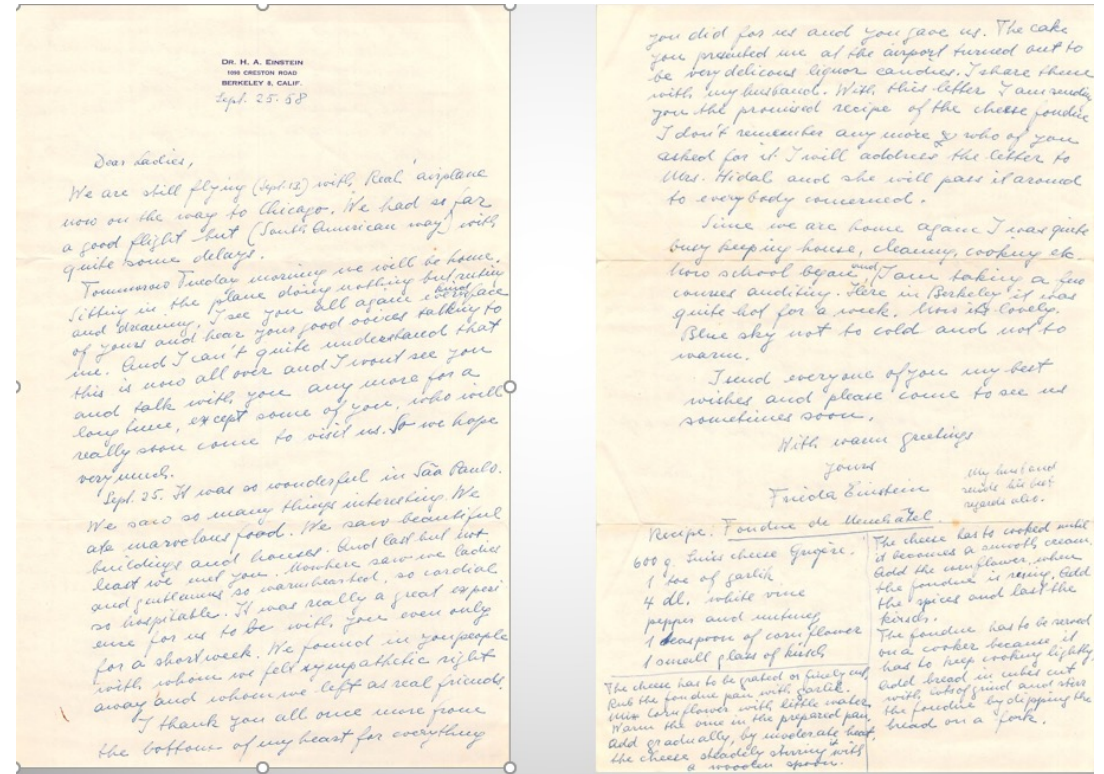 DR. H. A. EINSTEIN
1090 CRESTON ROAD
BERKELEY 8, CALIF.
Sept. 25. 58
Dear Ladies,
We are still flying (Sept. 15) with "Real" airplane
now on the way to Chicago. We had so far
a good flight but (South American way) with
quite some delays.
Tommorow Tuesday morning we will be home.
Sitting in the plane doing nothing but
and dreaming, I see you all again and face
of yours and hear your good voices talking to
me. And I can't quite understand that
this is now all over and I won't see you
and talk with you any more for a
long time, except some of you, who will
really soon come to visit us. So we hope
very much.
Sept. 25. It was so wonderful in São Paulo.
We saw so many things interesting. We
ate marvelous food. We saw beautiful
buildings and houses. And last but not
least we met you. Nowhere saw we ladies
and gentlemens so warmhearted, so cordial
so hospitable. It was really a great experi
ence for us to be with you even only
for a short week. We found in you people
with whom we felt sympathetic right
away and whom we left as real friends.
I thank you all once more from
the bottom of my heart for everything
you did for us and you gave us. The cake
you presented me at the airport turned out to
be very delicous liquor candies. I share them
with my husband. With this letter I am sending
you the promised recipe of the cheese fondue
I don't remember any more who of you
asked for it. I will address the letter to
Mrs. Hidal and she will pass it around
to everybody concerned.
Since we are home again I was quite
busy keeping house, cleaning, cooking etc.
Now school began and I am taking a few
courses auditing. Here in Berkeley it was
quite hot for a week. Now its lovely.
Blue sky not to cold and not to
warm.
I send everyone of you my best
wishes and please come to see us
sometimes soon.
With warm greetings
Yours
Frieda Einstein
My husband
sends his best
regards also.
Recipe. Fondue de Neuchâtel.
600 g. Swiss cheese Gruyère.
1 toe of garlik
4 dl. white vine
pepper and nutmeg
1 teaspoon of corn flower
1 small glass of kirsch
The cheese has to be grated or finely cut.
Rub the fondue pan with garlic.
Mix cornflower with little water.
Warm the vine in the prepared pan.
Add gradually, by moderate heat,
the cheese steadely stirring with
a wooden spoon.
The cheese has to cooked until
it becomes a smooth cream.
Add the cornflower, when
the fondue is rising. Add
the spices and last the
kirsch.
The fondue has to be served
on a cooker because it
has to keep cooking lightly.
Add bread in cubes cut
with lots of and stirr
the fondue by dipping the
bread on a fork.